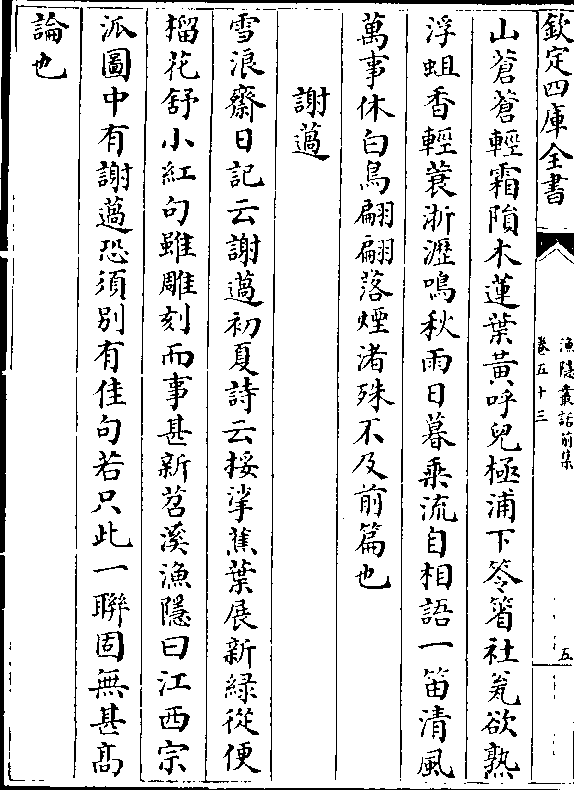 欽定四庫全書
漁隱叢話前集
卷五十三
五
山蒼蒼輕霜隕木蓮葉黃呼兒極浦下笭箵社瓮欲熟
浮蛆香輕蓑淅瀝鳴秋雨日暮乘流自相語一笛清風
萬事休白鳥翩翩落煙渚殊不及前篇也
謝薖
雪浪齋日記云謝薖初夏詩云挼挲蕉葉展新緑從便
榴花舒小紅句雖雕刻而事甚新苕溪漁隱曰江西宗
派圖中有謝薖恐須別有佳句若只此一聯固無甚髙
論也